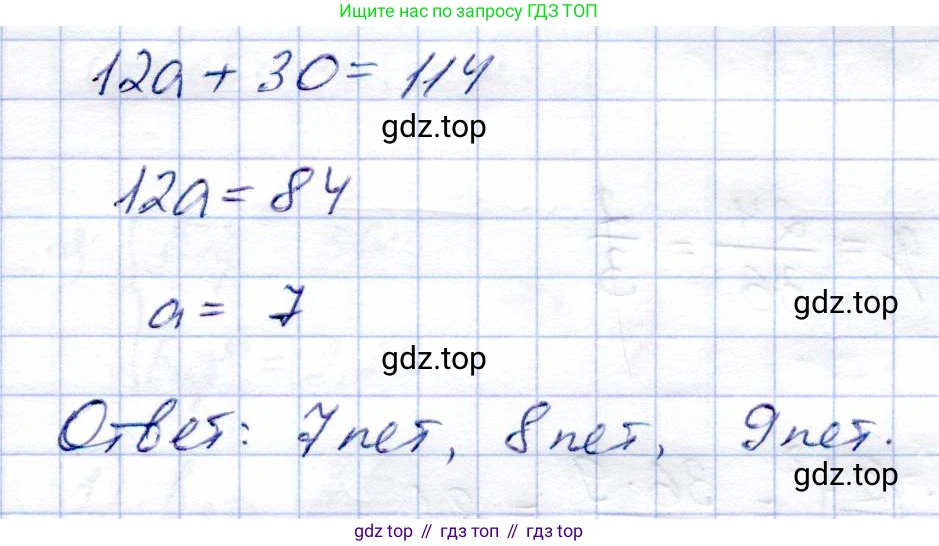 Ищите нас по запросу ГДЗ ТОП
12a + 30 = 114
gdz.top
12a = 84
gdz.top
a = 7
gdz.top
Ответ: 7 лет, 8 лет, 9 лет.
gdz.top
gdz top // гдз топ // gdz top